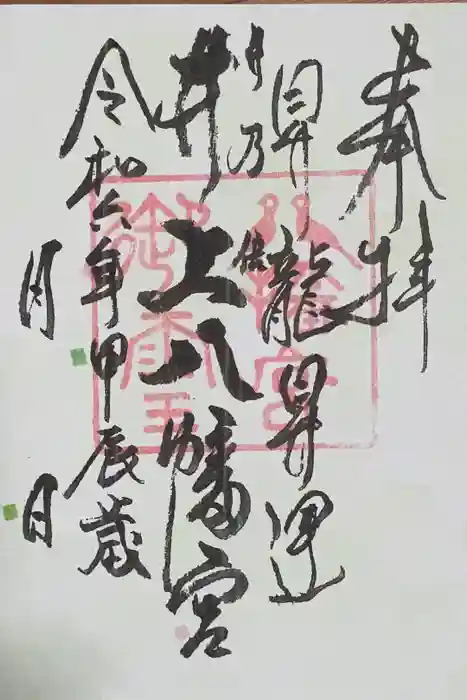 奉拝
昇龍昇運
井上八幡宮
令和六年甲辰歳
月 日
八幡宮